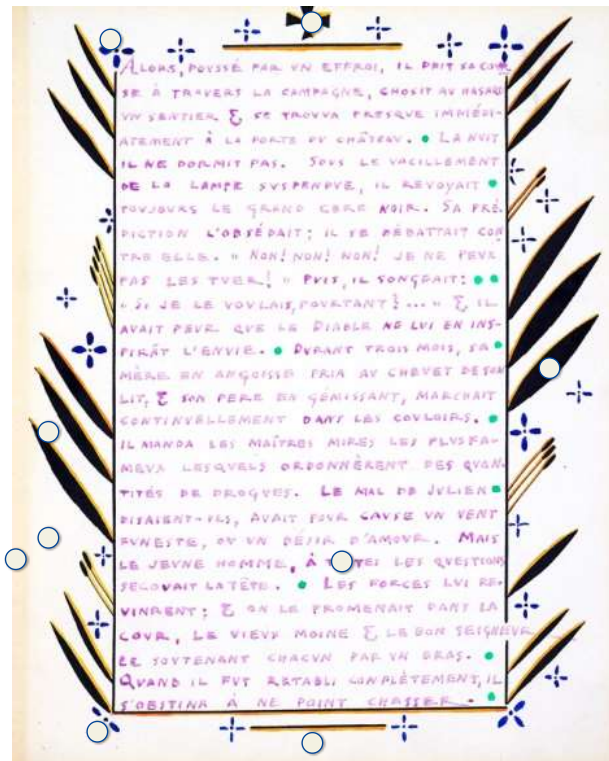 ALORS, POVSSÉ PAR VN EFFROI, IL PRIT SA COVR
SE À TRAVERS LA CAMPAGNE, CHOISIT AV HASARD
VN SENTIER & SE TROVVA PRESQVE IMMÉDI-
ATEMENT À LA PORTE DV CHÂTEAV. • LA NVIT
IL NE DORMIT PAS. SOVS LE VACILLEMENT
DE LA LAMPE SVSPENDVE, IL REVOYAIT •
TOVJOVRS LE GRAND CERF NOIR. SA PRÉ-
DICTION L'OBSÉDAIT; IL SE DÉBATTAIT CON
TRE ELLE. « NON! NON! NON! JE NE PEVX
PAS LES TVER! » PVIS, IL SONGEAIT: • •
« SI JE LE VOVLAIS, POVRTANT?... » & IL
AVAIT PEVR QVE LE DIABLE NE LVI EN INS-
PIRÂT L'ENVIE. • DVRANT TROIS MOIS, SA •
MÈRE EN ANGOISSE PRIA AV CHEVET DE SON
LIT, & SON PÈRE EN GÉMISSANT, MARCHAIT
CONTINVELLEMENT DANS LES COVLOIRS. •
IL MANDA LES MAÎTRES MIRES LES PLVS FA-
MEVX LESQVELS ORDONNÈRENT DES QVAN-
TITÉS DE DROGVES. LE MAL DE JVLIEN •
DISAIENT-ILS, AVAIT POVR CAVSE VN VENT
FVNESTE, OV VN DÉSIR D'AMOVR. MAIS
LE JEVNE HOMME, À LES QVESTIONS
SECOVAIT LA TÊTE. • LES FORCES LVI RE-
VINRENT; & ON LE PROMENAIT DANS LA
COVR, LE VIEVX MOINE & LE BON SEIGNEVR
LE SOVTENANT CHACVN PAR VN BRAS. •
QVAND IL FVT RÉTABLI COMPLÈTEMENT, IL
S'OBSTINA À NE POINT CHASSER. •